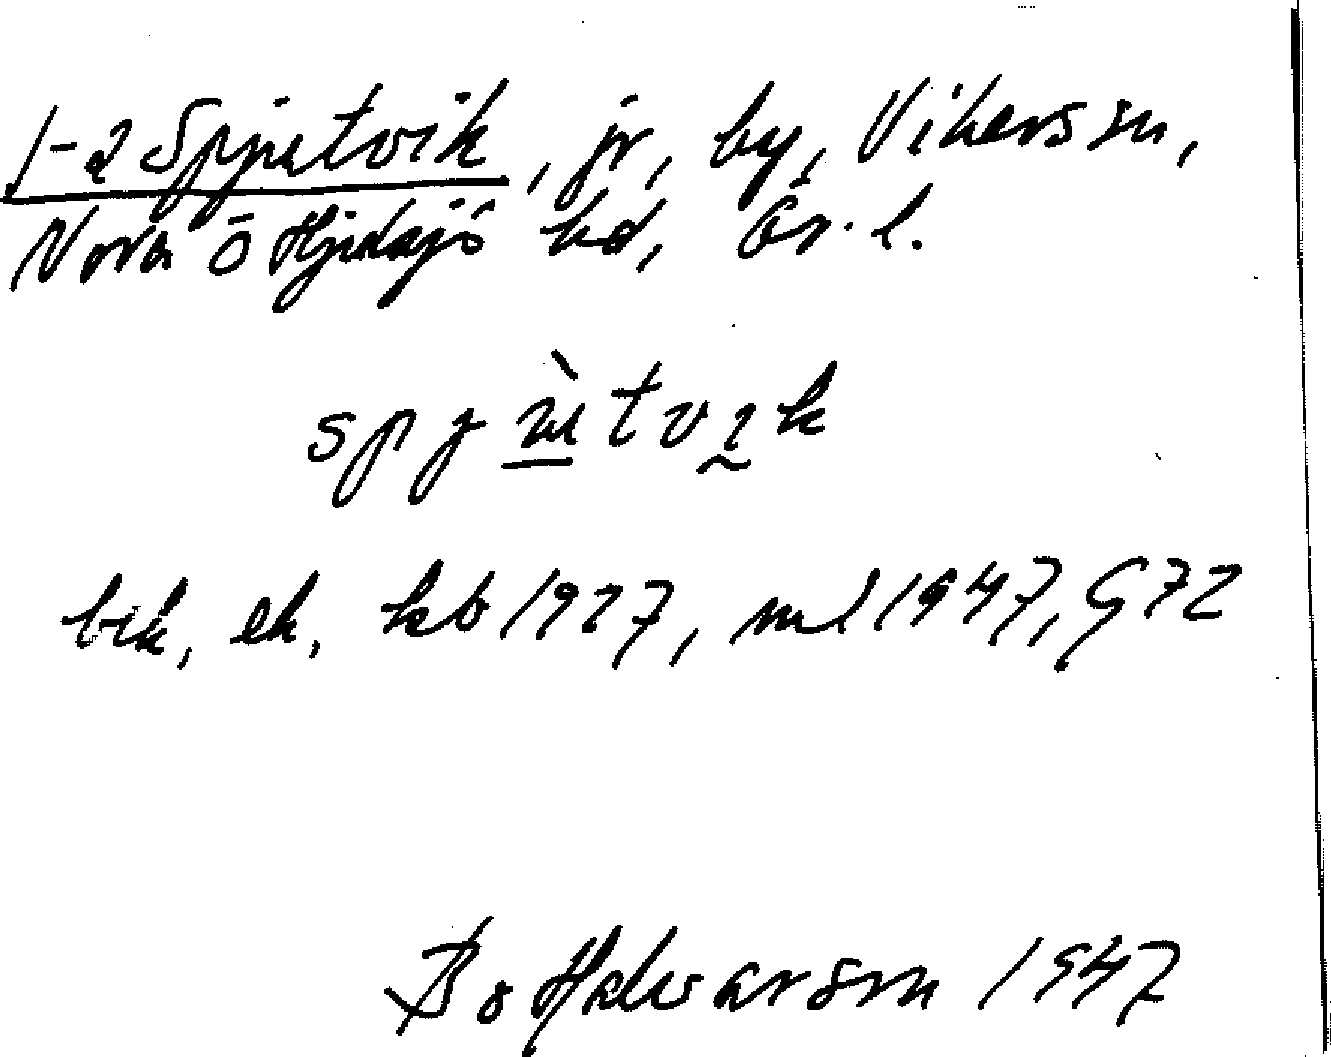 1-2 Spjutvik, jr, by, Vikers sn,
Nora ō Hjulsjö hd, Ör. l.
spjùtvɩk
bek, ek, kb 1927, ml 1947, G72
Bo Halvarson 1947